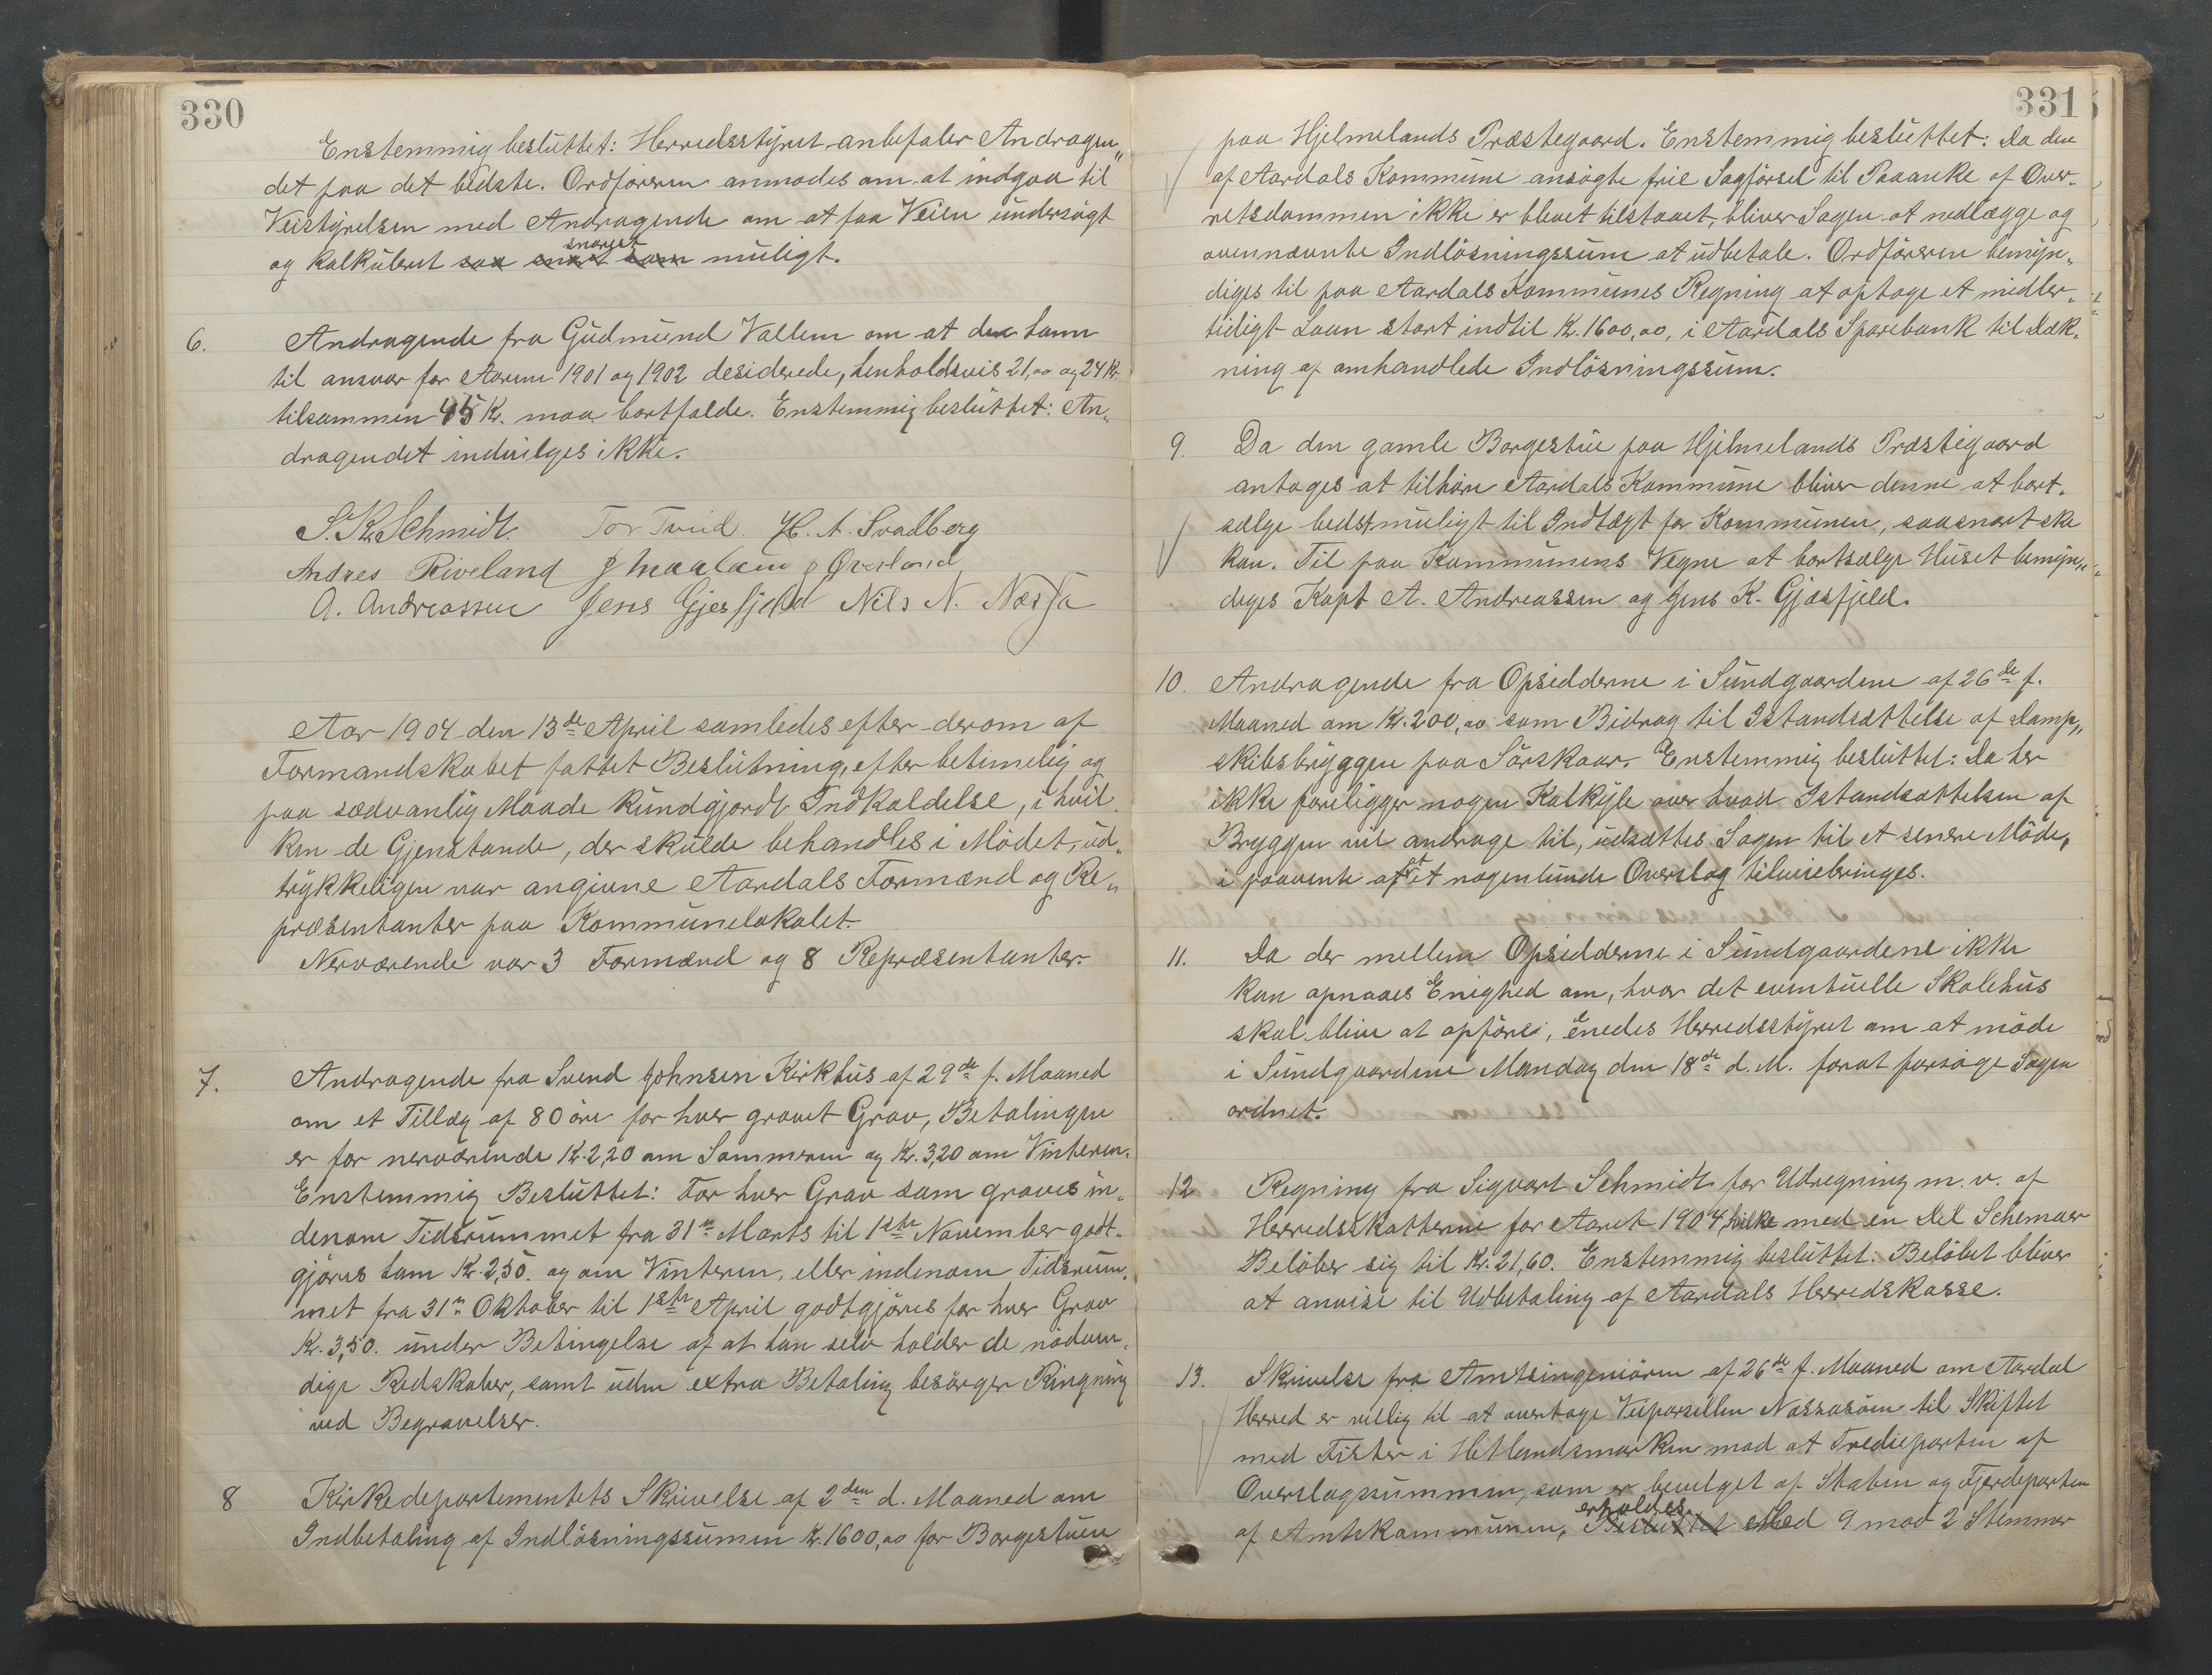 330
Enstemmig besluttet: Herredsstyret anbefaler Andragen„
det paa det bedste. Ordføreren anmodes om at indgaa til
Veistyrelsen med Andragende om at faa Veien undersøgt
snarest
og kalkuleret saa snart som muligt.
6. Andragende fra Gudmund Vallem om at den ham
til ansvar for Aarene 1901 og 1902 desiderede, henholdsvis 21,00 og 24 Kr.
tilsammen 45 Kr. maa bortfalde. Enstemmig besluttet: An„
dragendet indvilges ikke.
S. K. Schmidt. Tor Tveid. H. A. Svadberg
Andres Riveland J Maaland J Øvreland
A. Andreassen Jens Gjesfjeld Nils N. Nessa
Aar 1904 den 13de April samledes efter derom af
Formandskabet fattet Beslutning, efter betimelig og
paa sædvanlig Maade kundgjordt Indkaldelse, i hvil„
ken de Gjenstande, der skulde behandles i Mødet, ud„
trykkeligen var angivne Aardals Formænd og Re„
præsentanter paa Kommunelokalet.
Nerværende var 3 Formænd og 8 Repræsentanter.
7. Andragende fra Svend Johnsen Kirkhus af 29de f. Maaned
om et Tillæg af 80 øre for hver gravet Grav, Betalingen
er for nerværende Kr. 2,20 om Sommeren og Kr. 3,20 om Vinteren.
Enstemmig Besluttet: For hver Grav som graves in„
denom Tidsrummet fra 31te Marts til 1ste November godt„
gjøres ham Kr. 2,50. og om Vinteren, eller indenom Tidsrum„
met fra 31te Oktober til 1ste April godtgjøres for hver Grav
Kr. 3,50. under Betingelse af at han selv holder de nødven„
dige Redskaber, samt uden extra Betaling besørger Ringning
ved Begravelser.
8 Kirkedepartementets Skrivelse af 2den d. Maaned om
Indbetaling af Indløsningssummen Kr. 1600,00 for Borgestuen
331
paa Hjelmelands Præstegaard. Enstemmig besluttet: Da den
af Aardals Kommune ansøgte frie Sagførsel til Paaanke af Over„
retsdommen ikke er blevet tilstaaet, bliver Sagen at nedlægge og
ovennævnte Indløsningssum at udbetale. Ordføreren bemyn„
diges til paa Aardals Kommunes Regning at optage et midler„
tidigt Laan stort indtil Kr. 1600,00, i Aardals Sparebank til Dæk„
ning af omhandlede Indløsningssum.
9. Da den gamle Borgestue paa Hjelmelands Præstegaard
antages at tilhøre Aardals Kommune bliver denne at bort„
sælge bedst muligt til Indtægt for Kommunen, saasnart ske
kan. Til paa Kommunens Vegne at bortsælge Huset bemyn„
diges Kapt A. Andreassen og Jens K. Gjøsfjeld.
10. Andragende fra Opsidderne i Sundgaardene af 26de f.
Maaned om Kr. 200,00 som Bidrag til Istandsættelse af Damp„
skibsbryggen paa Sørskaar. Enstemmig besluttet: Da her
ikke foreligger nogen Kalkyle over hvad Istandsættelsen af
Bryggen vil andrage til, udsættes Sagen til et senere Møde,
i paavente af at et nogenlunde Overslag tilveiebringes.
11. Da der mellem Opsidderne i Sundgaardene ikke
kan opnaaes Enighed om, hvor det eventuelle Skolehus
skal blive at opføres, enedes Herredsstyret om at møde
i Sundgaardene Mandag den 18de d. M. forat forsøge Sagen
ordnet.
12 Regning fra Sigvart Schmidt for Udregning m. v. af
Herredsskatterne for Aaret 1904, hvilke med en Del Schemaer
Beløber sig til Kr. 21,60. Enstemmig besluttet: Beløbet bliver
at anvise til Udbetaling af Aardals Herredskasse.
13. Skrivelse fra Amtsingeniøren af 26de f. Maaned om Aardal
Herred er villig til at overtage Veiparsellen Nessasøen til Skiftet
med Fister i Hetlandsmarken mod at Trediparten af
Overslagssummen, som er bevilget af Staten og Fjerdeparten
erholdes.
af Amtskommunen, Besluttet Med 9 mod 2 Stemmer